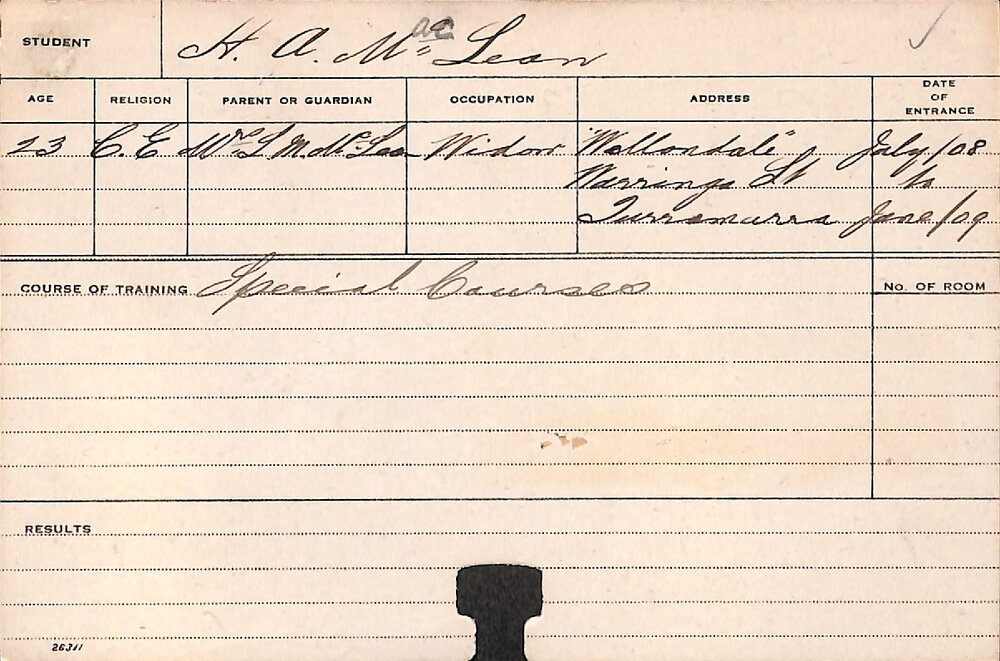 STUDENT H. A. Mc Lean
ac
AGE RELIGION PARENT OR GUARDIAN OCCUPATION ADDRESS DATE OF ENTRANCE
23 C. E Mrs L M. Mc Lean Widow "Wollondale" July/08
Warringa St to
Turramurra June/09
COURSE OF TRAINING Special Courses
No. OF ROOM
RESULTS
26311